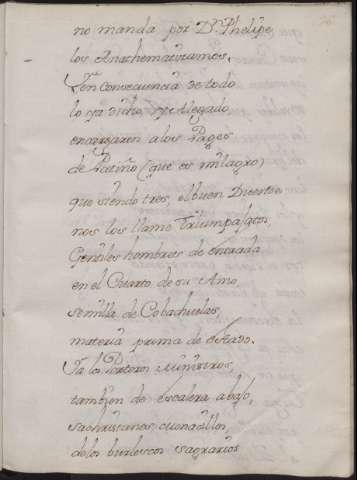 no manda por Dn. Phelipe,
los Anathematizamos.
Y en consecuencia de todo
lo ya dicho, y Alegado
encargaren a los Pages
de Patiño (que es milagro)
que siendo tres, el buen Duende
nos los llamo Triumpasgatos,
Gentiles hombres de entrada
en el Cuarto de su Amo,
semilla de Cobachuelas,
materia prima de estado.
Ya los Porteros
tambien de Escalera abajo,
sachristanes
de los burlescos sagrarios